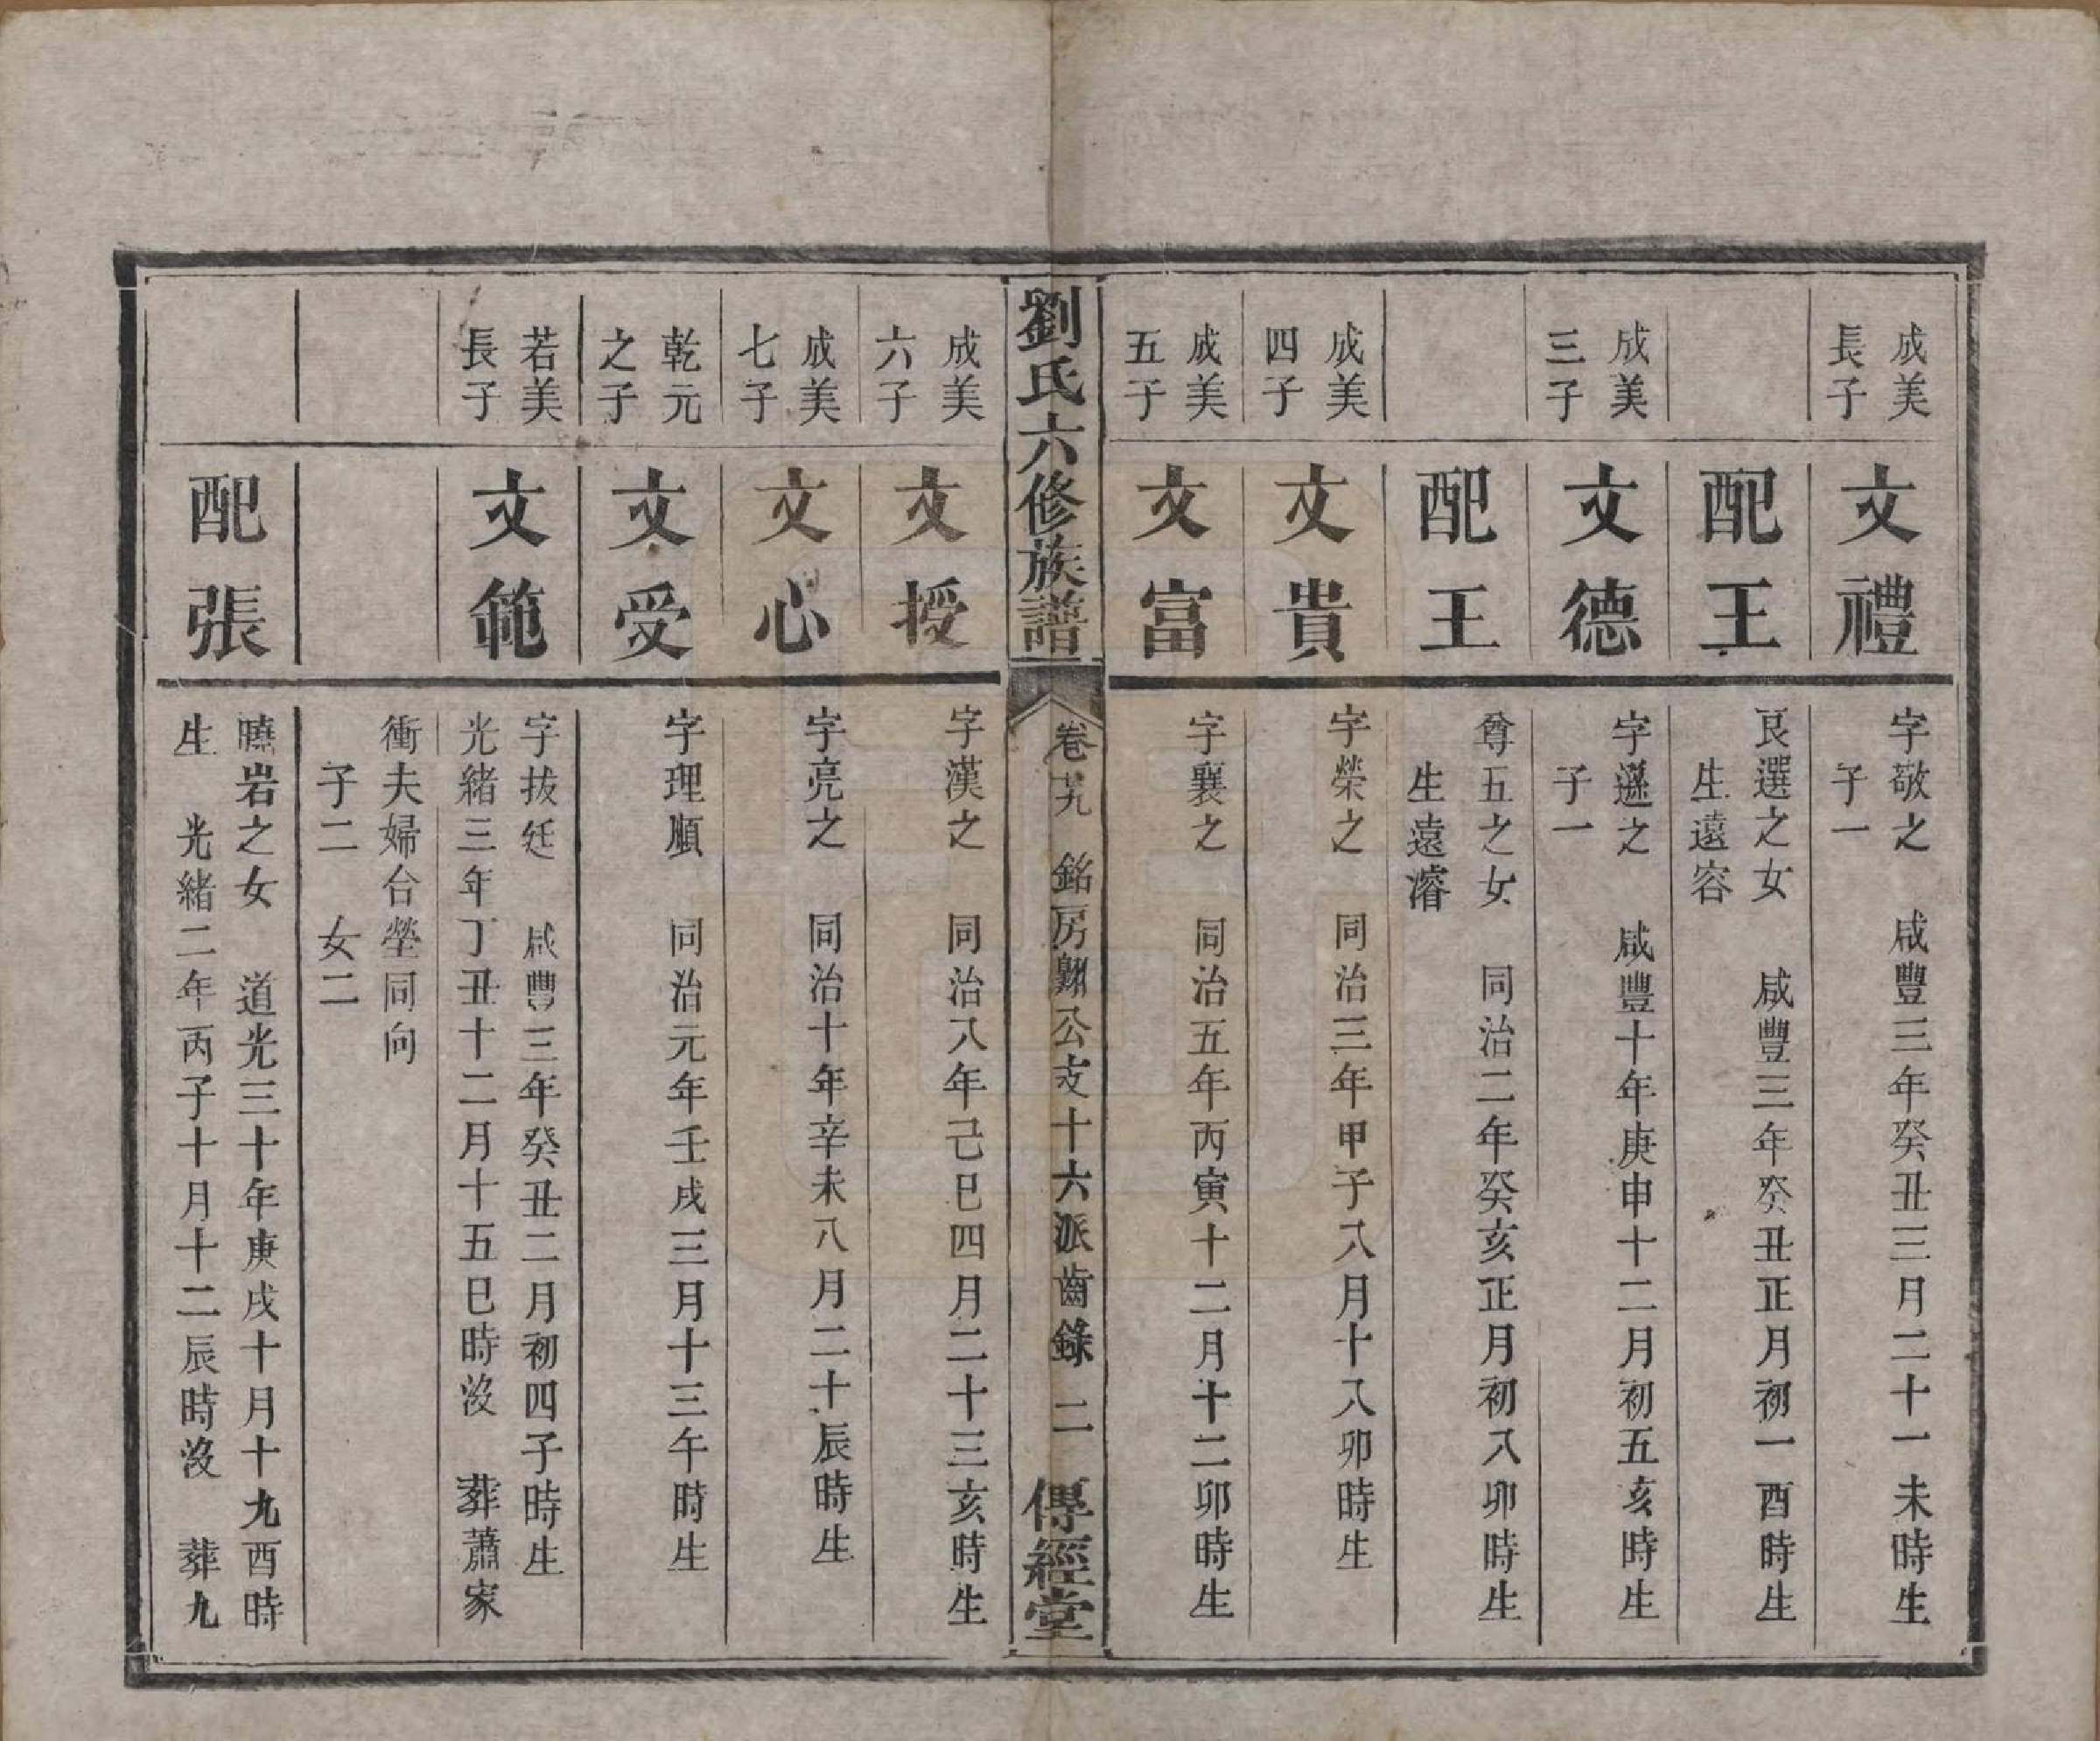 成美
長子
文禮
字敬之　咸豐三年癸丑三月二十一未時生
子一
配王
良選之女　咸豐三年癸丑正月初一酉時生
生遠容
成美
三子
文德
字遜之　咸豐十年庚申十二月初五亥時生
子一
配王
尊五之女　同治二年癸亥正月初八卯時生
生遠濬
成美
四子
文貴
字榮之　同治三年甲子八月十八卯時生
成美
五子
文富
字襄之　同治五年丙寅十二月十二卯時生
劉氏六修族譜
卷　銘房翺公支十六派齒錄　二　傳經堂
成美
六子
文授
字漢之　同治八年己巳四月二十三亥時生
成美
七子
文心
字亮之　同治十年辛未八月二十辰時生
乾元
之子
文受
字理順　同治元年壬戌三月十三午時生
若美
長子
文範
字拔廷　咸豐三年癸丑二月初四子時生
光緒三年丁丑十二月十五巳時沒　葬蕭家
衝夫婦台塋同向
子二　女二
配張
曉岩之女　道光三十年庚戌十月十九酉時
生　光緒二年丙子十月十二辰時沒　葬九